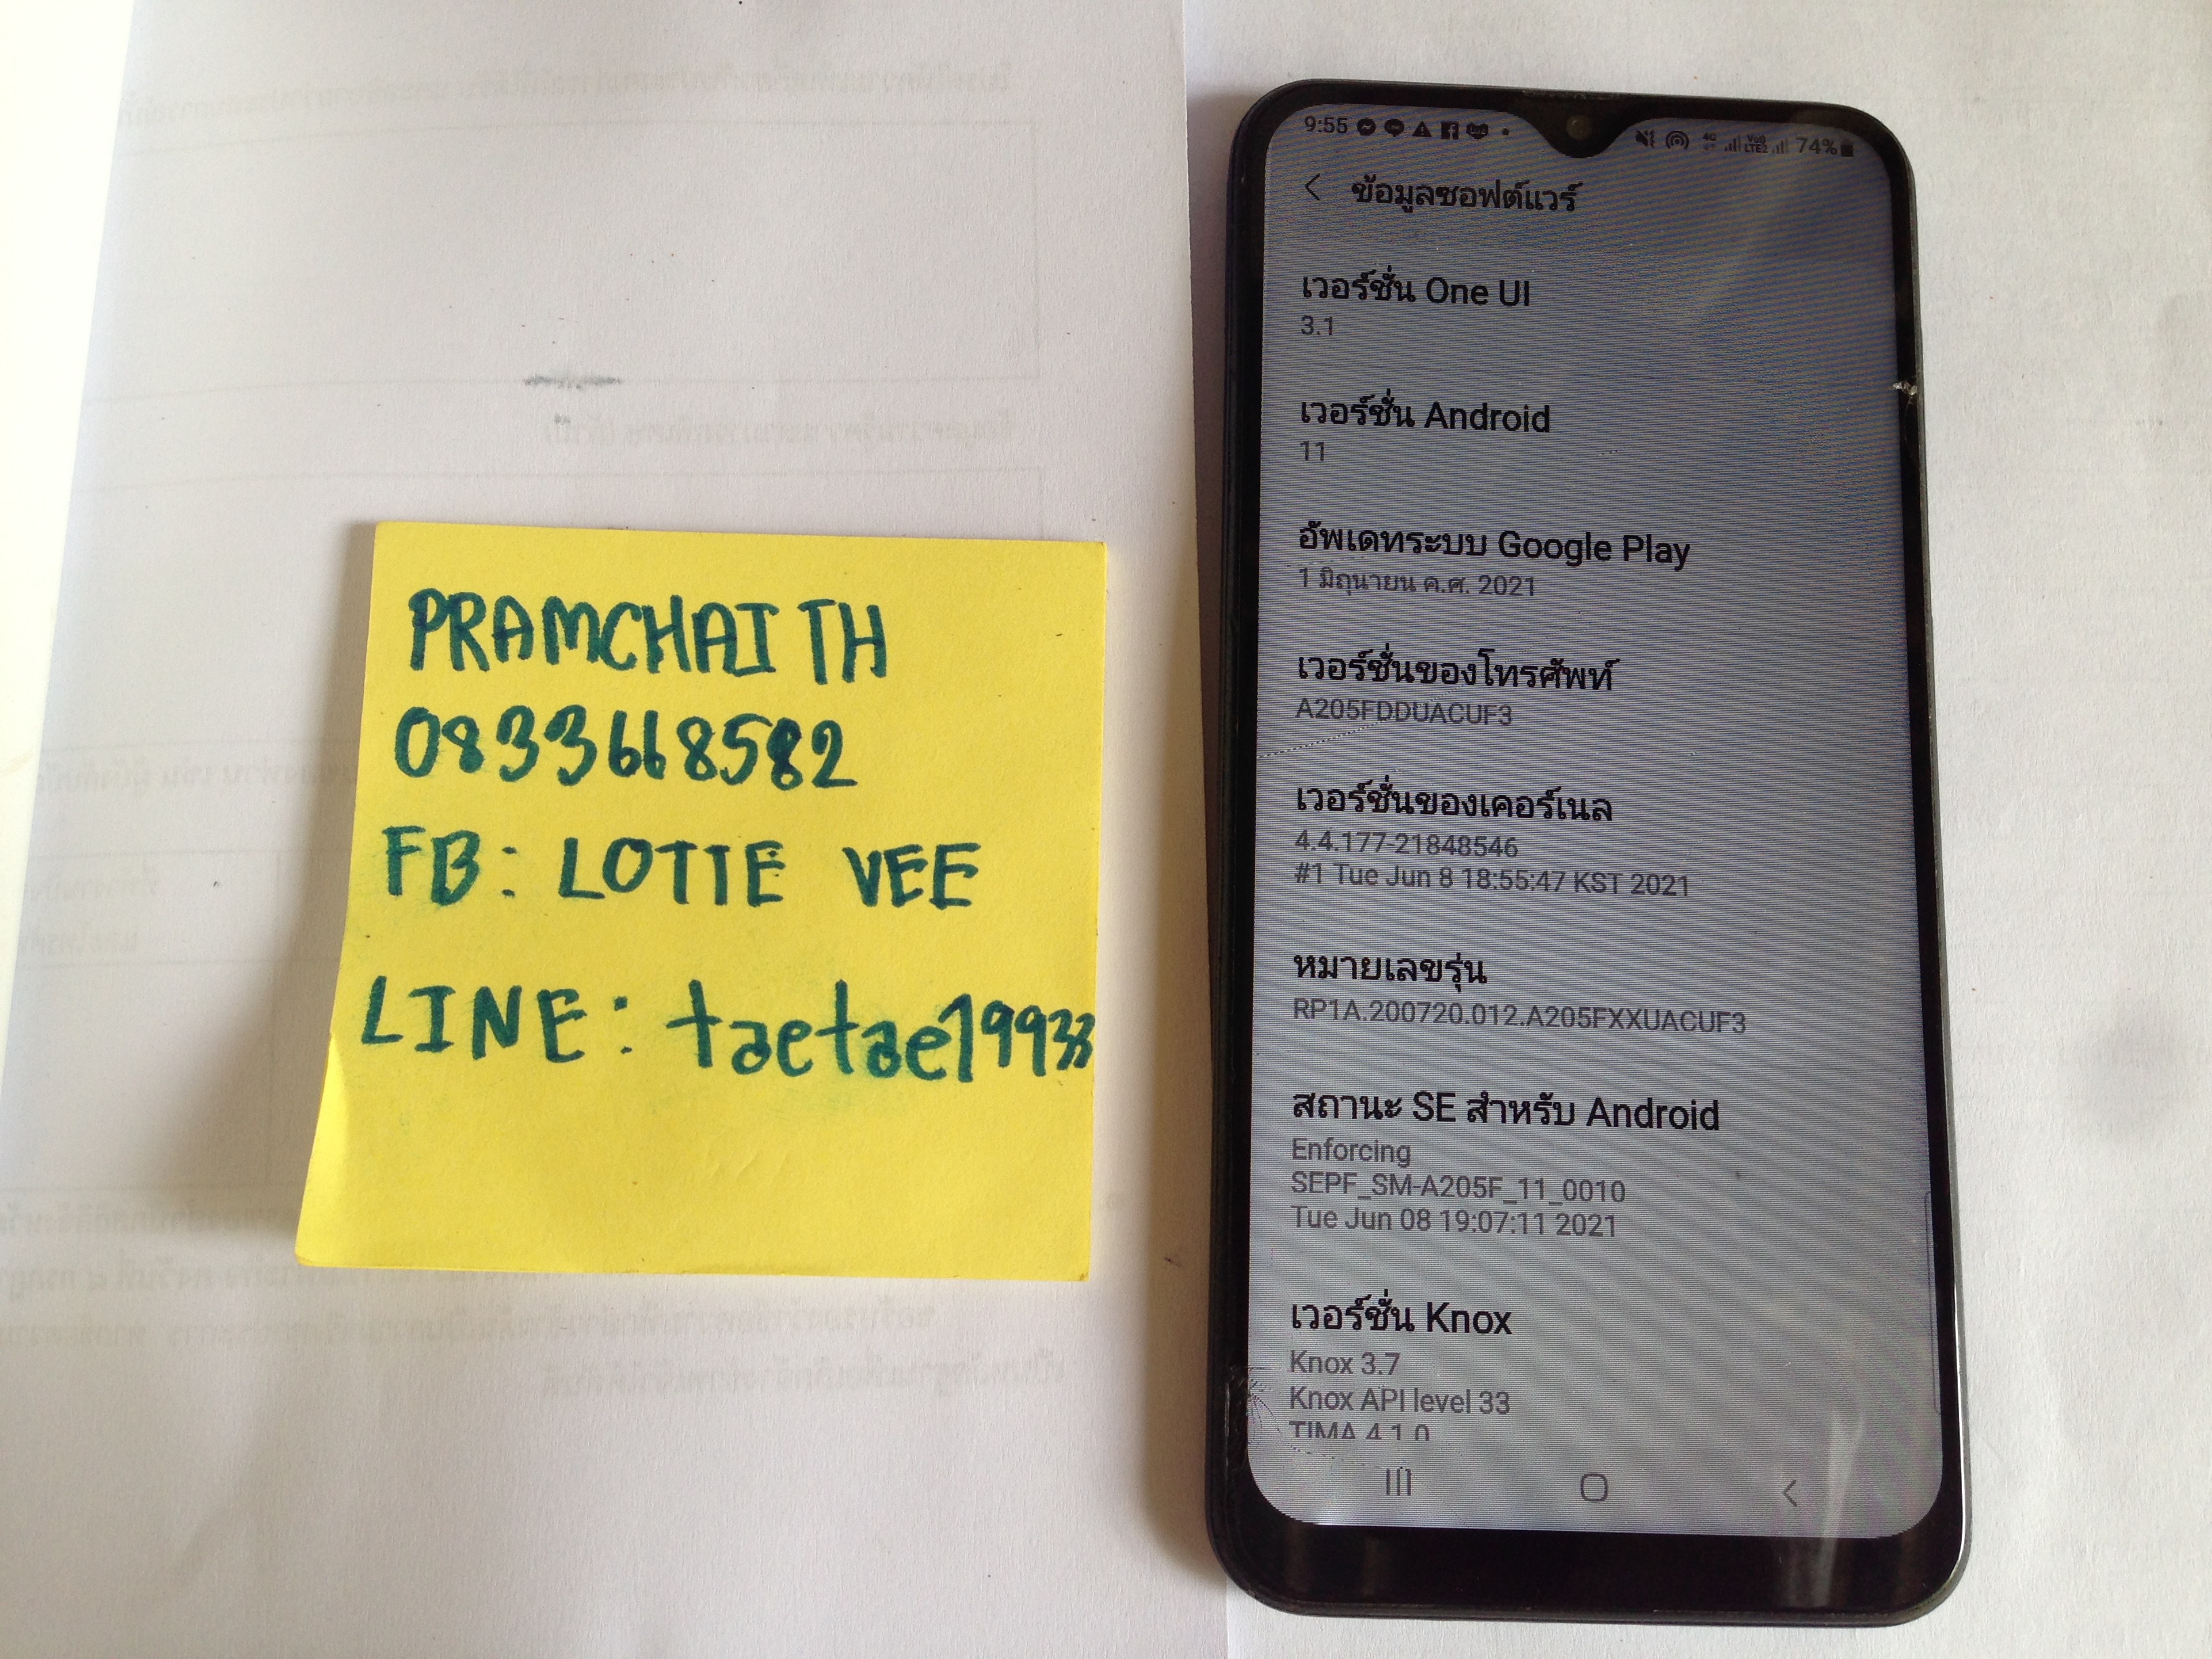 PRAMCHAI TH
0833668582
FB: LOTTE VEE
LINE: taetae19933
9:55
74%
ข้อมูลซอฟต์แวร์
เวอร์ชั่น One UI
3.1
เวอร์ชั่น Android
11
อัพเดทระบบ Google Play
1 มิถุนายน ค.ศ. 2021
เวอร์ชั่นของโทรศัพท์
A205FDDUACUF3
เวอร์ชั่นของเคอร์เนล
4.4.177-21848546
#1 Tue Jun 8 18:55:47 KST 2021
หมายเลขรุ่น
RP1A.200720.012.A205FXXUACUF3
สถานะ SE สำหรับ Android
Enforcing
SEPF_SM-A205F_11_0010
Tue Jun 08 19:07:11 2021
เวอร์ชั่น Knox
Knox 3.7
Knox API level 33
TIMA 4.1.0